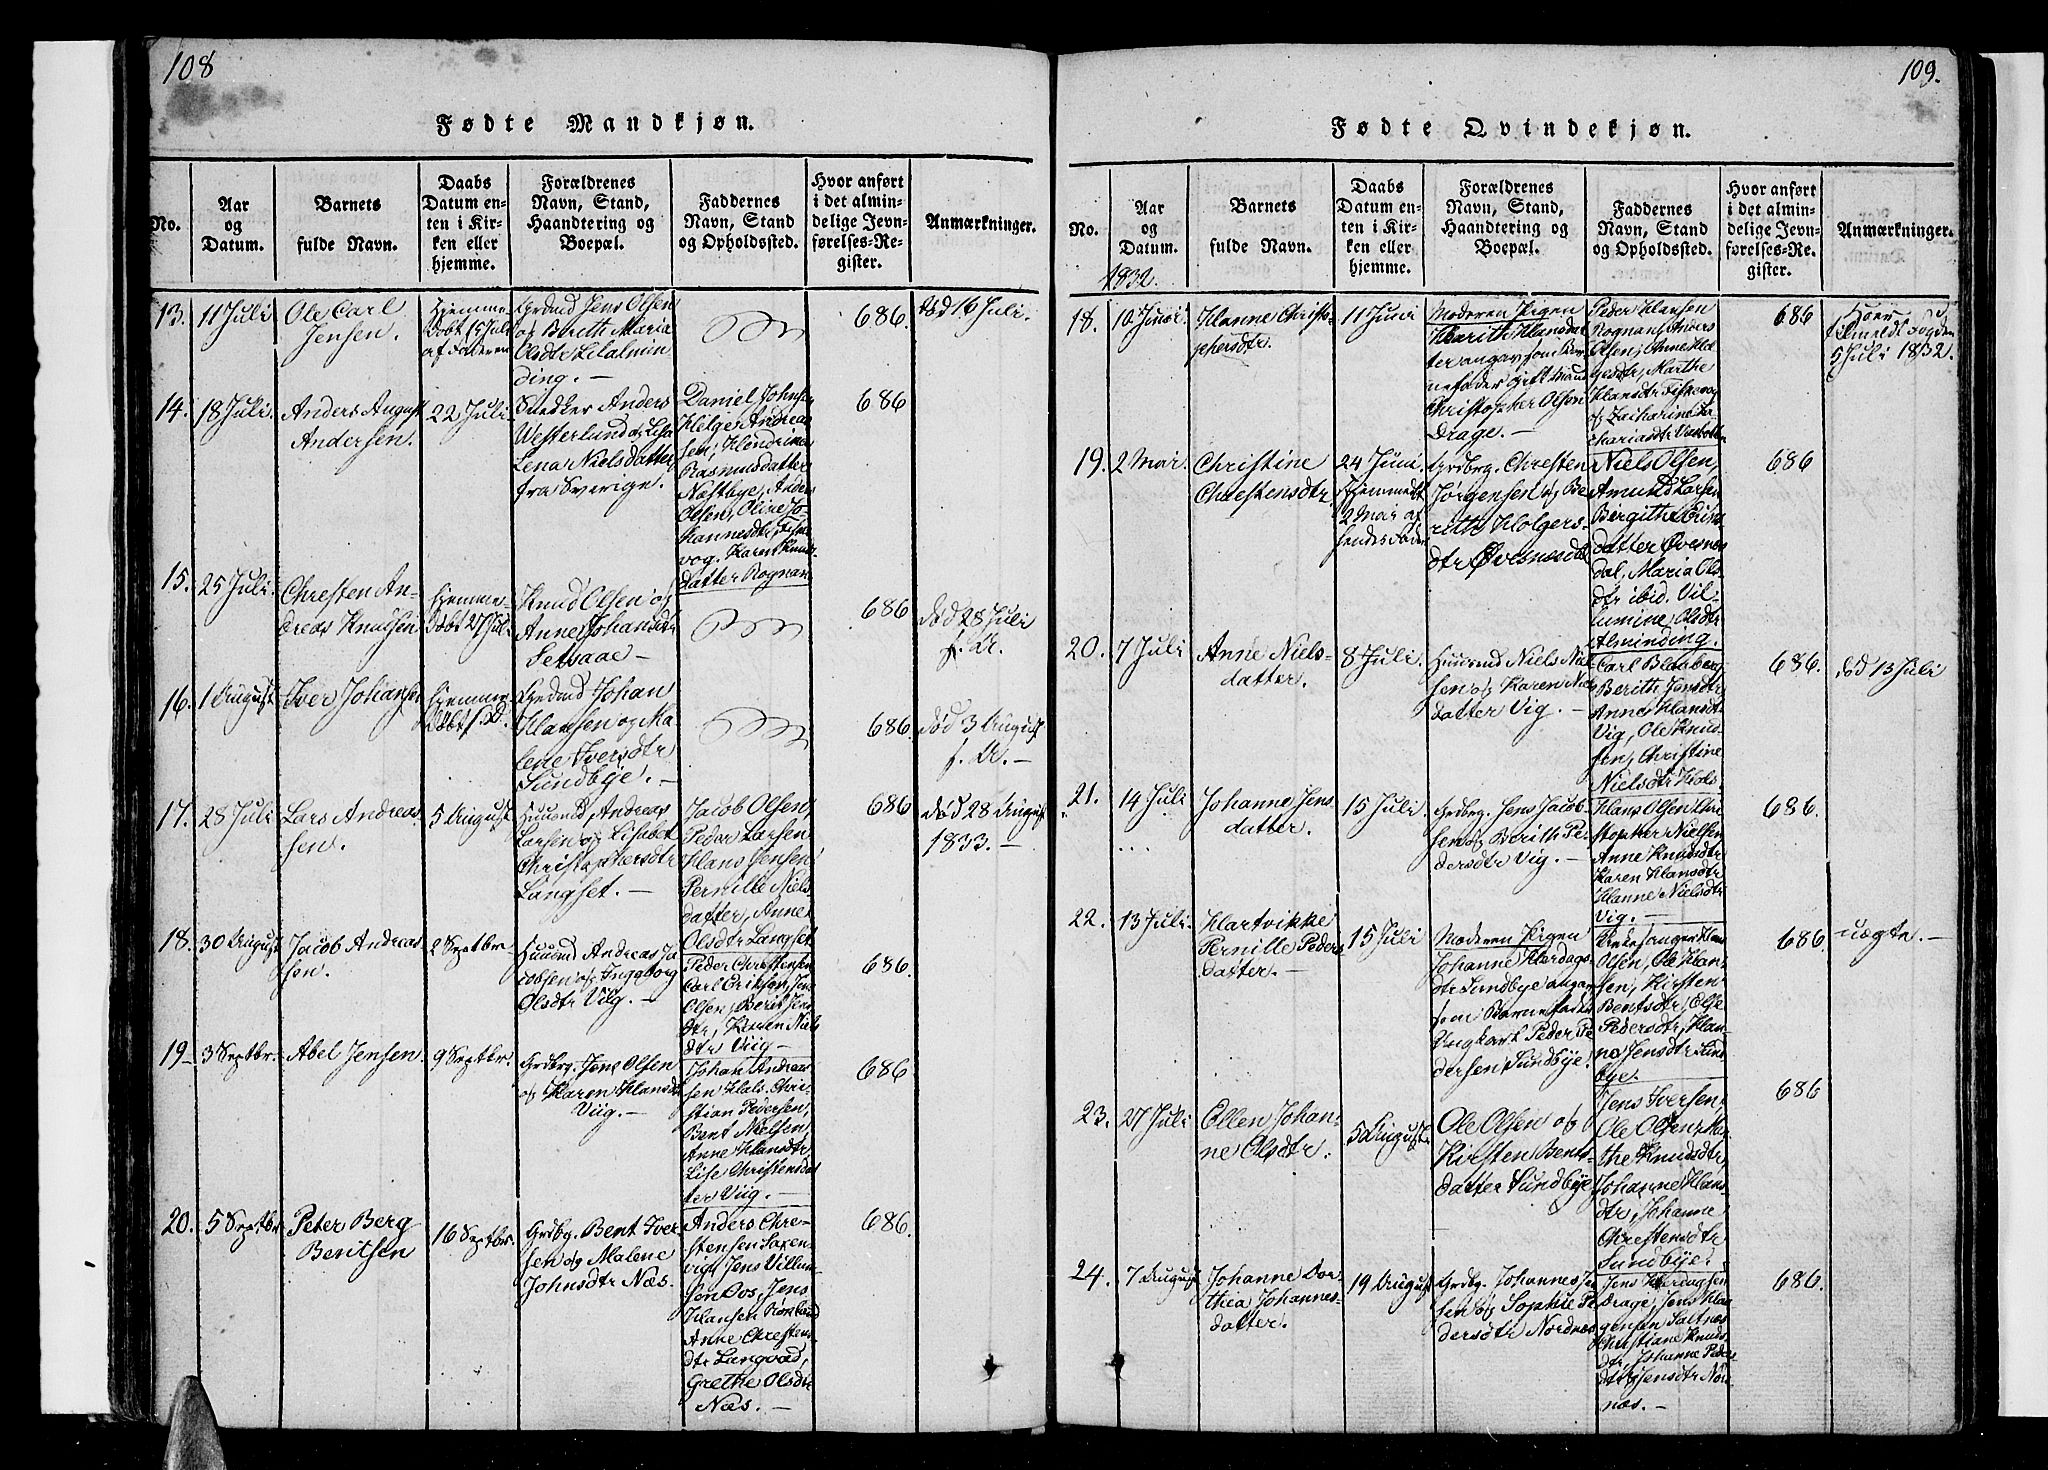 108
Fødte Mandkjøn.
No.
Aar
og
Datum.
Barnets
fulde Navn.
Daabs
Datum en-
ten i Kir-
ken eller
hjemme.
Forældrenes
Navn, Stand,
Haandtering og
Boepæl.
Faddernes
Navn, Stand
og Opholdssted.
Hvor anført
i det almin-
delige Jevn-
førelses-Re-
gister.
Anmærkninger.
13.
11 Juli
Ole Carl
Jensen.
Hjemme
døbt 15 Juli
af Faderen
Grdmd Jens Olsen
og Berith Maria
Olsdtr Lilalmin
ding. —
686.
død 16 Juli.
14.
18 Juli.
Anders August
Andersen.
22 Juli.
Snedker Anders
Westerlund og Lisa
Lena Nielsdatter
fra Sverige.
Daniel Johns
Helge Andrea
sen, Hendrina
Rasmusdatter
Næstbye, Anders
Olsen, Oline Jo-
hannesdtr Fiske
vog. Karen Knuds
datter Rognan
686
15.
25 Juli.
Chresten An-
dreas Knudsen
hjemme-
døbt 27 Juli
Knud Olsen og
Anne Johansdtr
Setsaae —
686
død 28 Juli
f. A.
16.
1 August
Iver Johansen
hjemme
døbt s. D.
Grdmd Johan
Hansen og Ma-
lene Iversdtr
Sundbye. —
686.
død 3 August
f. A. —
17.
28 Juli
Lars Andreas
sen.
5 August
Huusmd Andreas
Larsen og Lisabet
Christophersdtr
Langset. —
Jacob Olsen,
Peder Larsen
Hans Jensen
Pernille Niels
datter, Anne
Olsdtr Langset
686
død 28 August
1833. —
18.
30 August
Jacob Andreas
sen.
2 Septbr
Huusmd Andreas Ja
cobsen og Ingeborg
Olsdtr Viig. —
Peder Christensen
Carl Eriksen, Jens
Olsen, Berit Jens
dtr, Karen Niels
dtr Viig —
686.
19 —
3 Septbr.
Abel Jensen.
9 Septbr.
Grdbrg. Jens Olsen
og Karen Hansdtr
Viig. —
Johan Andrea
sen Hals. Chri-
stian Pedersen,
Bent Nielsen
Anne Hansdtr
Lise Christensdat
ter Viig. —
686
20.
5 Septbr
Peter Berg
Bentsen
16 Septbr.
Grdbg. Bent Iver
sen og Malene
Johnsdtr Næs.
Anders Chre-
stensen Saxen-
vig, Jens Villum
sen Dos, Jens
Hansen
Anne Chrestens
dtr Langvad,
Grethe Olsdtr
Næs. —
686.
109.
Fødte Qvindekjøn.
No.
Aar
og
Datum.
1832.
Barnets
fulde Navn.
Daabs
Datum en-
ten i Kir-
ken eller
hjemme.
Forældrenes
Navn, Stand,
Haandtering og
Boepæl.
Faddernes
Navn, Stand
og Opholdssted.
Hvor anført
i det almin-
delige Jevn-
førelses-Re-
gister.
Anmærkninger.
18.
10 Juni.
Hanne Christo-
phersdtr.
11 Juni
Moderen Pigen
Marith Hansdat
ter angav som Bar
nefader gift Mand
Christopher Olsen
Drage. —
Peder Hansen
Rognan, Anders
Olsen, Anne Hel
gesdtr, Marthe
Hansdtr Fiskevog
og Zacharina Za
chariasdtr
686
Hoer
5 Juli 1832.
19.
2 Mai.
Christine
Chrestensdtr.
24 Juni.
Hjemmedt
2 Mai af
Grdbrg. Chresten
Jørgensen og Be-
rith Holgers-
dtr Øvesnesdal
Niels Olsen,
Amund Larsen
Birgithe
datter Øvesnes
dal, Maria Ols-
dtr ibid. Vil
lumine Olsdtr
Alminding.
686
20.
7 Juli
Anne Niels-
datter.
8 Juli.
Huusmd Niels Niel
sen og Karen Niels
datter Vig. —
Carl
Berith Jensdtr
Anne Hansdtr
Vig, Ole Knud
sen, Christine
Nielsdtr Hals
686.
død 13 Juli
21.
14 Juli
Johanne Jens
datter.
15 Juli
Grdbrg. Jens Jacob
sen og Berith Pe-
dersdtr Vig. —
Hans Olsen Chri
stopher Nielsen
Anne Knudsdtr
Karen Hansdtr
Hanne Nielsdtr
Vig. —
686.
22.
13 Juli.
Hartvikke
Pernille Peders
datter. —
15 Juli
Moderen Pigen
Johanne Hardags-
dtr Sundbye angav
som Barnefader
Ungkarl Peder Pe
dersen Sundbye.
Kirkesanger Hans
Olsen, Ole Han-
sen, Kirsten
Bentsdtr, Else
Pedersdtr, Han-
na Jensdtr Sund
bye.
686.
uægte. —
23.
27 Juli
Ellen Johan-
ne Olsdtr.
5 August
Ole Olsen og
Kirsten Bents-
datter Sundbye
Jens Iversen,
Ole Olsen, Mar
the Knudsdtr,
Johanne Hans
dtr, Johanne
Chrestensdtr
Sundbye.
686
24.
7 August
Johanne Dor-
thea Johannes-
datter.
19 August
Grdbg. Johannes Je
sen og Sophie Pe
dersdtr Nordnes
Jens
Drage, Jens Haa
gensen Saltnes
Christiane Knuds
dtr, Johanne Peders
dtr, Jensdtr Nord-
næs. —
686.